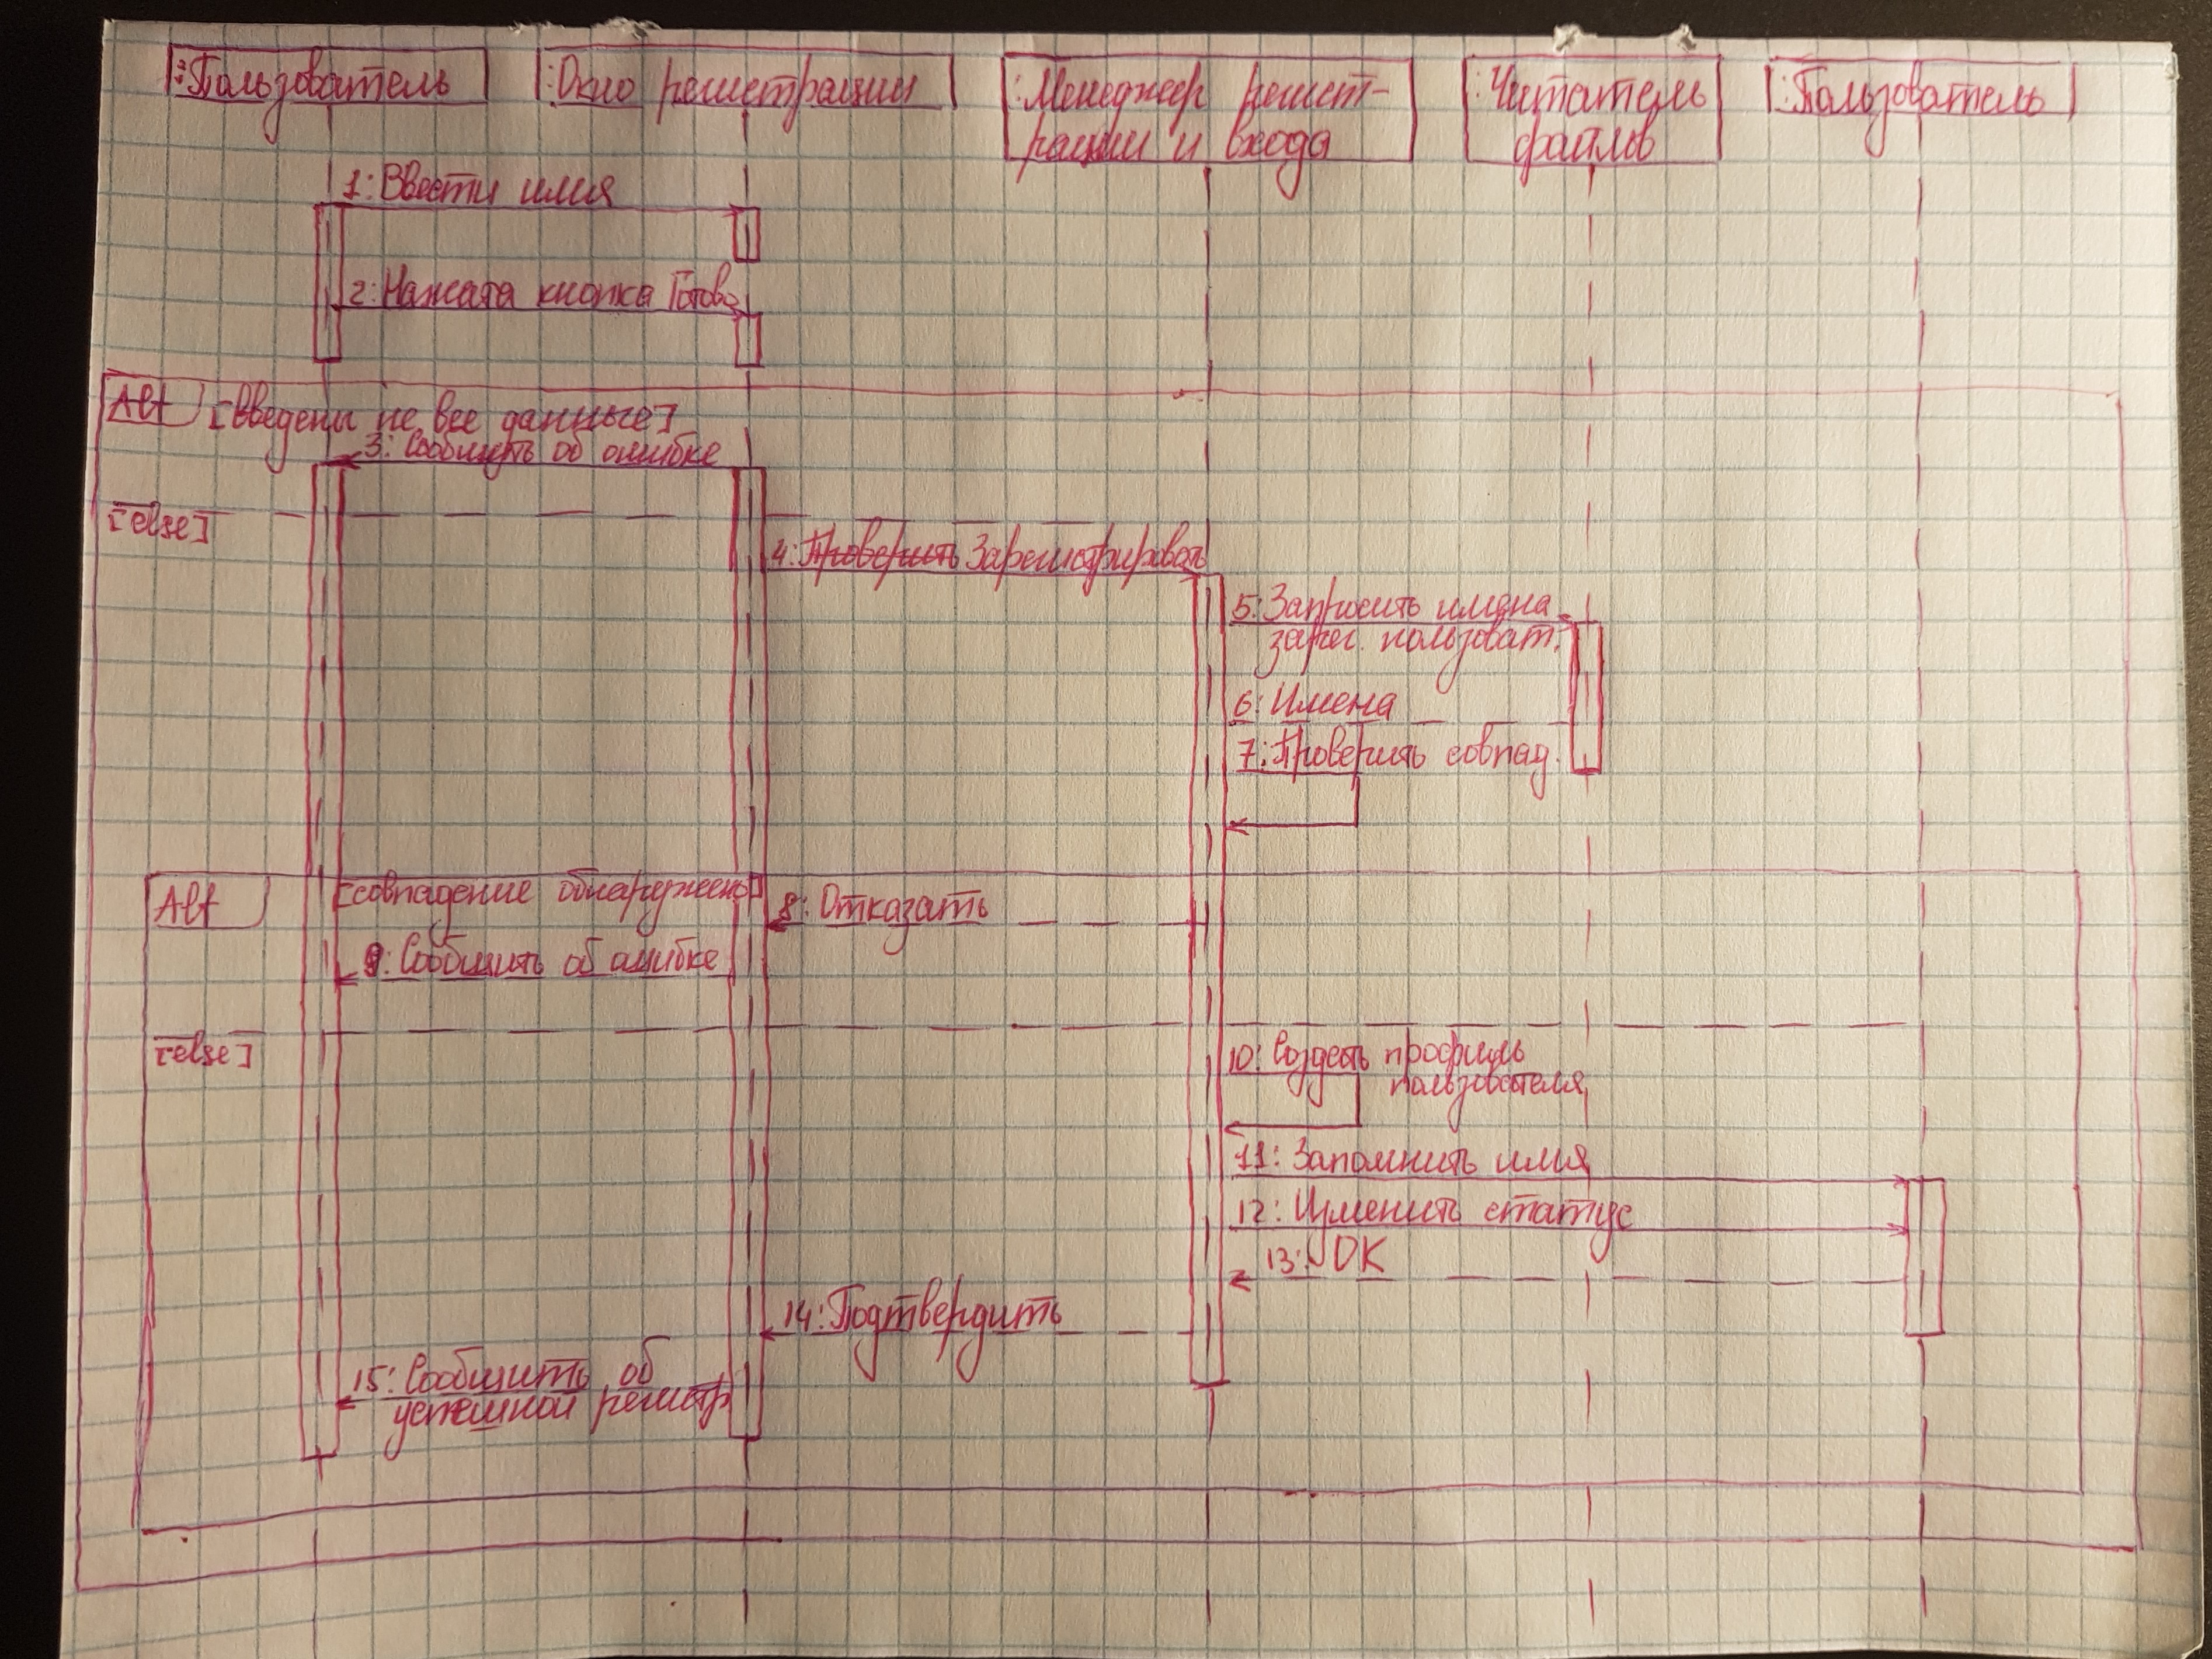 :Пользователь
:Окно регистрации
:Менеджер регист-
рации и входа
:Читатель
файлов
:Пользователь
1: Ввести имя
2: Нажата кнопка Готово
Alt [Введены не все данные]
3: Сообщить об ошибке
[else]
4: Проверить Зарегистрировать
5: Запросить имена
зарег. пользоват.
6: Имена
7: Проверить совпад.
Alt [совпадение обнаружено]
8: Отказать
9: Сообщить об ошибке
[else]
10: Создать профиль
пользователя
11: Запомнить имя
12: Изменить статус
13: OK
14: Подтвердить
15: Сообщить об
успешной регистр